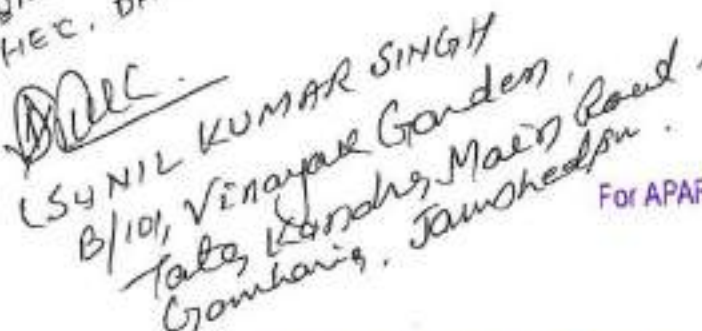 HEC.
(SUNIL KUMAR SINGH
B/101, Vinayak Garden,
Tata Kandra Main Road.
Gamharia. Jamshedpur.
For APAR